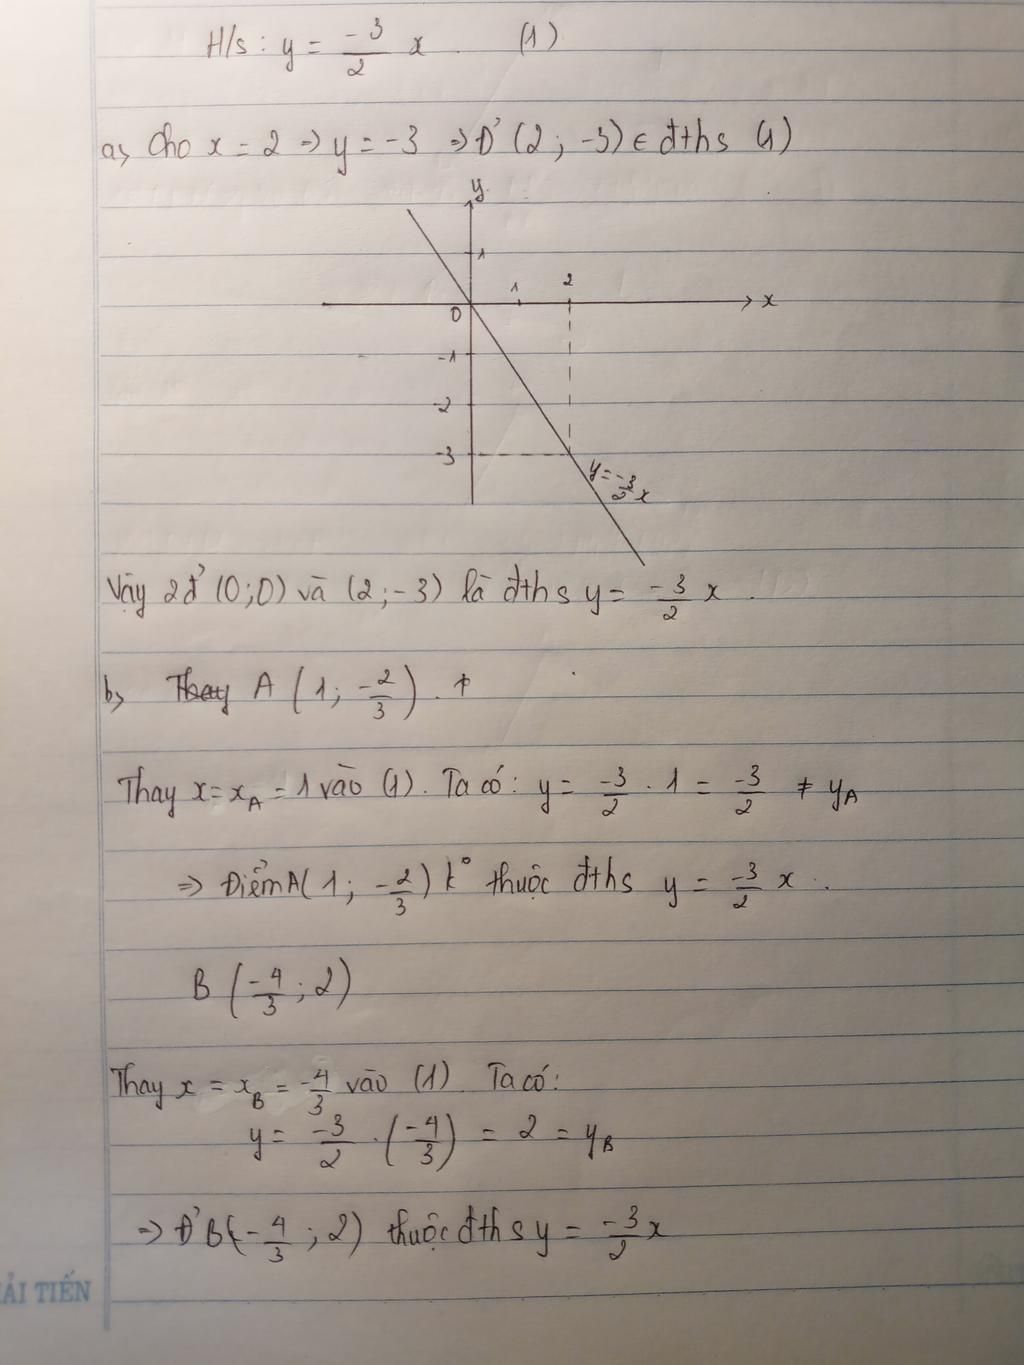 H/s : y = -3/2 x (1)
a, Cho x = 2 => y = -3 => Đ' (2 ; -3) ∈ đths (1)
y
1
1 2
x
0
-1
-2
-3
y = -3/2 x
Vậy 2đ' (0;0) và (2;-3) là đths y = -3/2 x .
b, Thay A (1 ; -2/3) . +
Thay x = xA = 1 vào (1). Ta có : y = -3/2 . 1 = -3/2 ≠ yA
=> Điểm A( 1 ; -2/3 ) k° thuộc đths y = -3/2 x .
B (-4/3 ; 2)
Thay x = xB = -4/3 vào (1) Ta có :
y = -3/2 . (-4/3) = 2 = yB
=> Đ' B(-4/3 ; 2) thuộc đths y = -3/2 x
ẢI TIẾN